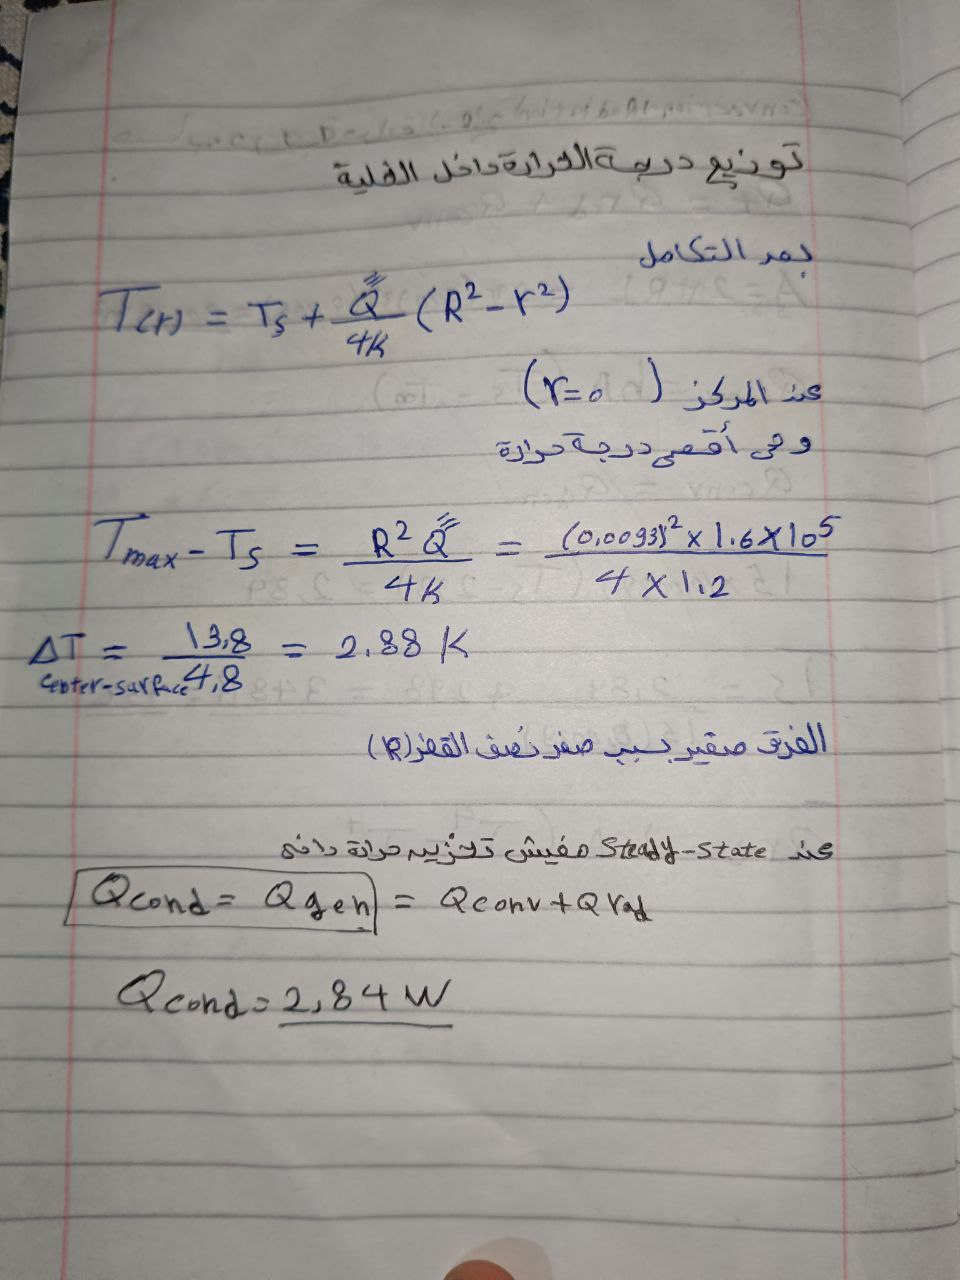 توزيع درجة الحرارة داخل الخلية
بعد التكامل
T(r) = Ts + Q‴/4K (R² - r²)
عند المركز (r=0)
وهي أقصى درجة حرارة
Tmax - Ts = R² Q‴/4K = (0,0093)² × 1.6 × 10⁵/4 × 1.2
ΔT center-surface = 13,8/4,8 = 2.88 K
الفرق صغير بسبب صغر نصف القطر (R)
عند Steady-State مفيش تخزين حرارة داخلي
Qcond = Qgen = Qconv + Qrad
Qcond = 2,84 W